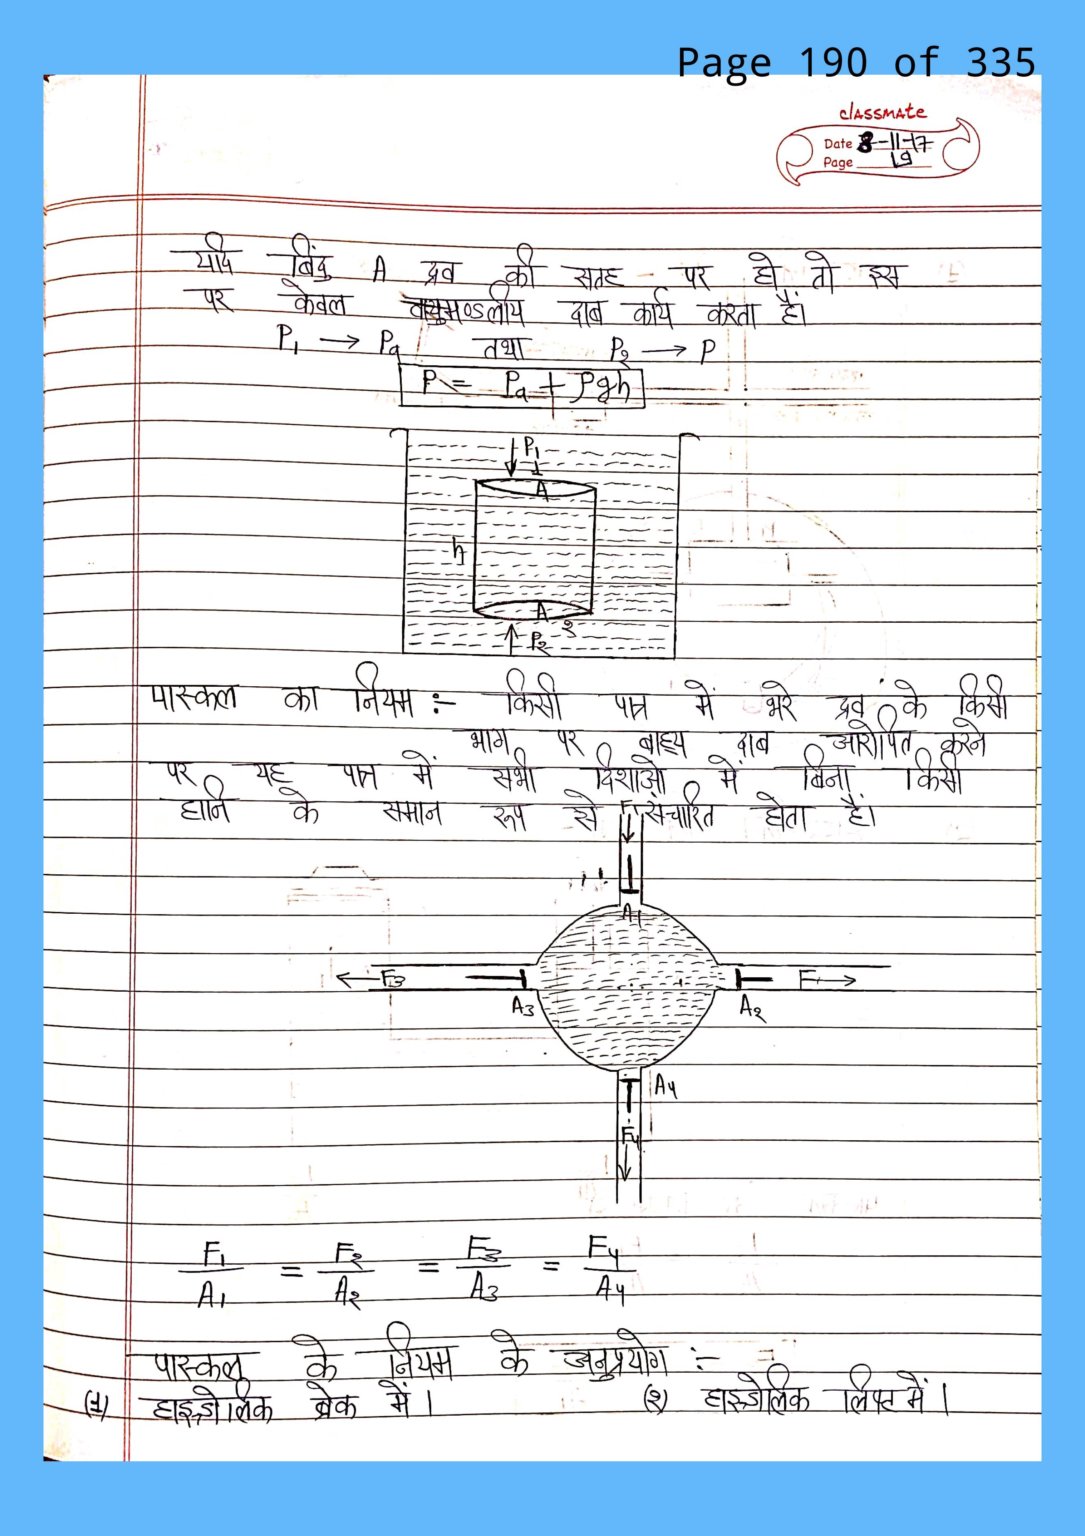 Page 190 of 335
classmate
Date 8-11-17
Page 19
यदि बिंदु A द्रव की सतह पर हो तो इस
पर केवल वायुमण्डलीय दाब कार्य करता है।
P₁ → Pa तथा P₂ → P
P = Pa + ρgh
P₁
1
A
h
A
2
P₂
पास्कल का नियम :- किसी पात्र में भरे द्रव के किसी
भाग पर बाह्य दाब आरोपित करने
पर यह पात्र में सभी दिशाओ में बिना किसी
हानि के समान रूप से संचारित होता है।
F₁
A₁
F₃
F
A₃
A₂
A₄
F₄
F₁/A₁ = F₂/A₂ = F₃/A₃ = F₄/A₄
पास्कल के नियम के अनुप्रयोग :-
(1) हाइड्रोलिक ब्रेक में। (2) हाइड्रोलिक लिफ्ट में।